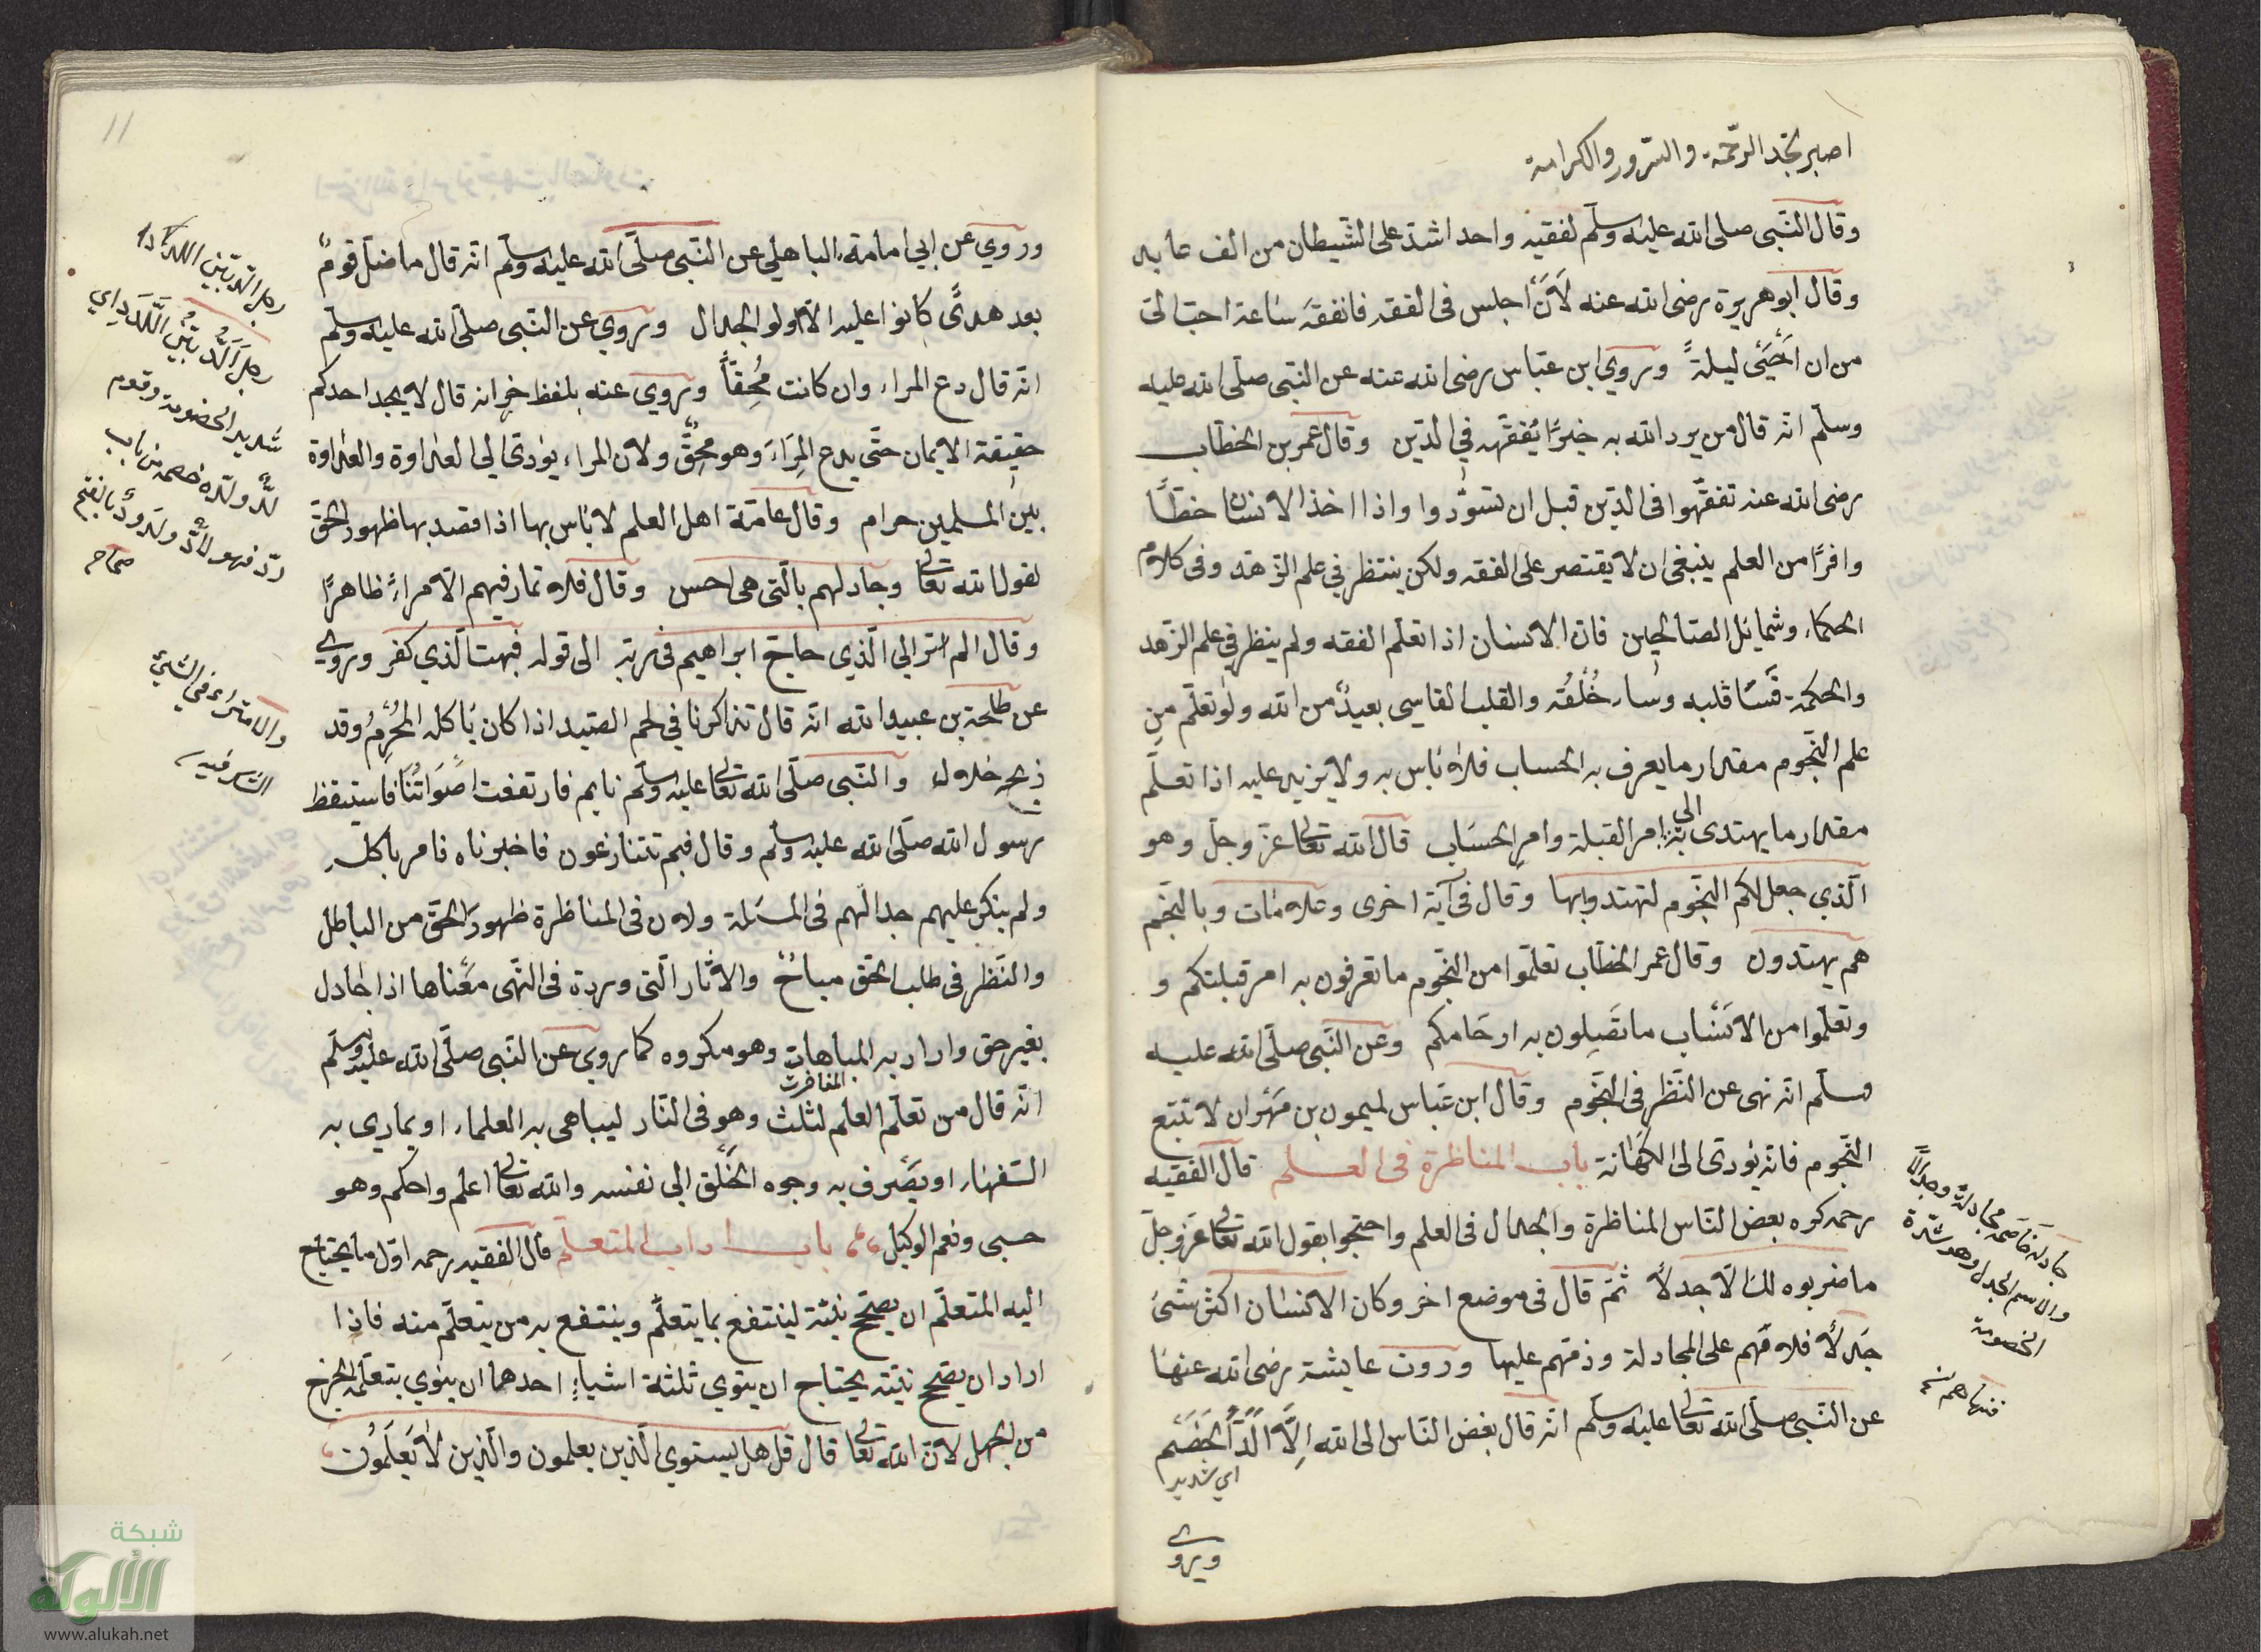 اصبر تجد الرحمة والسرور والكرامة
وقال النبى صلى الله عليه وسلم لفقيه واحد اشد على الشيطان من الف عابد
وقال ابو هريرة رضى الله عنه لأن اجلس فى الفقه فاتفقه ساعة احب الىّ
من ان احيى ليلةً وروي ابن عباس رضى الله عنه عن النبى صلى الله عليه
وسلم انه قال من يرد الله به خيرًا يفقهه فى الدين وقال عمر بن الخطاب
رضى الله عنه تفقهوا فى الدين قبل ان تسوّدوا واذا اخذ الانسان حظًا
وافرًا من العلم ينبغى ان لا يقتصر على الفقه ولكن ينتظر في علم الزهد وفى كلام
الحكماء وشمائل الصالحين فان الانسان اذا تعلم الفقه ولم ينظر فى علم الزهد
والحكمة قسا قلبه وساء خُلُقُه والقلب القاسى بعيدٌ من الله ولو تعلّم من
علم النجوم مقدار ما يعرف به الحساب فلا بأس به ولا يزيد عليه اذا تعلّم
مقدار ما يهتدى به الى امر القبلة وامر الحساب قال الله تعالى عز وجل وهو
الّذي جعل لكم النجوم لتهتدوا بها وقال فى آية اخرى وعلامات وبالنجم
هم يهتدون وقال عمر الخطاب تعلموا من النجوم ما تعرفون به امر قبلتكم و
وتعلموا من الانساب ما تصلون به ارحامكم وعن النبى صلى الله عليه
وسلم انه نهى عن النظر فى النجوم وقال ابن عباس لميمون بن مهران لا تتبع
النجوم فانه يؤدى الى الكهانة باب المناظرة فى العلم قال الفقيه
رحمه كره بعض الناس المناظرة والجدال فى العلم واحتجوا بقول الله تعالى عز وجل
ما ضربوه لك الّا جدلًا ثم قال فى موضع اخر وكان الانسان اكثر شئ
جدلًا فلامهم على المجادلة وذمهم عليها وروت عايشة رضى الله عنها
عن النبى صلى الله تعالى عليه وسلم انه قال بغض الناس الى الله الّا الدّ الخصم
اي شديد
ويروى
جادله خاصمه مجادلة وجدالًا
والاسم الجدل وهو شدة
الخصومة
فنهاهم نسخ
11
وروي عن ابي امامة الباهلي عن النبى صلى الله عليه وسلم انه قال ما ضل قومٌ
بعد هدىً كانوا عليه الا اولو الجدال وروي عن النبى صلى الله عليه وسلم
انه قال دع المراء وان كانت مُحِقًّا وروي عنه بلفظ خر انه قال لا يجد احدكم
حقيقة الايمان حتى يدع المِرَاءَ وهو مُحِقٌّ ولان المراء يؤدى الي العداوة والعداوة
بين المسلمين حرام وقال عامة اهل العلم لا بأس بها اذا قصد بها ظهور الحق
لقول الله تعالى وجادلهم بالتى هى احسن وقال فلا تمار فيهم الا مراءً ظاهرًا
وقال الم تر الي الّذي حاج ابراهيم فى ربه الى قوله فبهت الّذي كفر وروي
عن طلحة بن عبيد الله انه قال تذاكرنا في لحم الصيد اذا كان يأكله المحرم وقد
ذبحه حلال والنبى صلى الله تعالى عليه وسلم نايم فارتفعت اصواتنا فاستيقظ
رسول الله صلى الله عليه وسلم وقال فبم تتنازعون فاخبرناه فامر بأكله
ولم ينكر عليهم جدالهم فى المسئلة ولان فى المناظرة ظهور الحق من الباطل
والنظر فى طلب الحق مباحٌ والآثار التى وردة فى النهى معناها اذا جادل
بغير حق واراد به المباهات وهو مكروه كما روي عن النبى صلى الله عليه وسلم
المفاخرت
انه قال من تعلّم العلم لثلث وهو فى النار ليباهى به العلماء او يمارى به
السفهاء او يصرف به وجوه الخلق الي نفسه والله تعالى اعلم واحكم وهو
حسبى ونعم الوكيل باب اداب المتعلّم قال الفقيه رحمه اوّل ما يحتاج
اليه المتعلّم ان يصحح نيته لينتفع بما يتعلّم وينتفع به من يتعلّم منه فاذا
اراد ان يصحح نيته يحتاج ان ينوي ثلثة اشياء احدهما ان ينوي بتعلمه الخروج
من الجهل لان الله تعالى قال قل هل يستوي الذين يعلمون والذين لا يعلمون
رجل الدّ بيّن اللدد اي
شديد الخصومة وقوم
لُدّ ولدّه خصمه من باب
ردّ فهو لادّ ولدودٌ بالفتح
صحاح
والامتراء فى الشئ
الشك فيه
شبكة
الألوكة
www.alukah.net